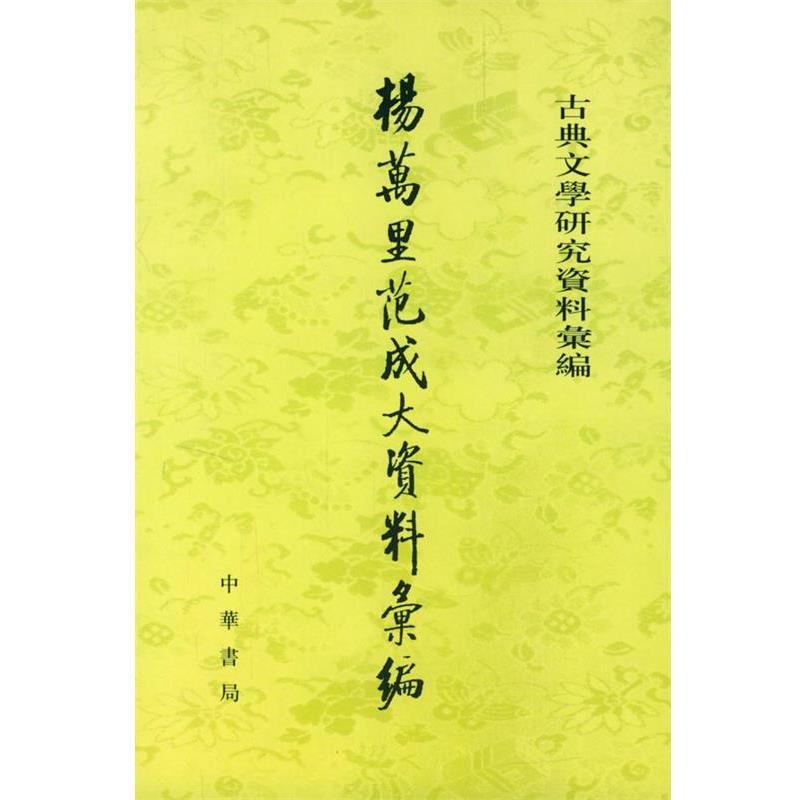 古典文學研究資料彙編
楊萬里范成大資料彙編
中華書局